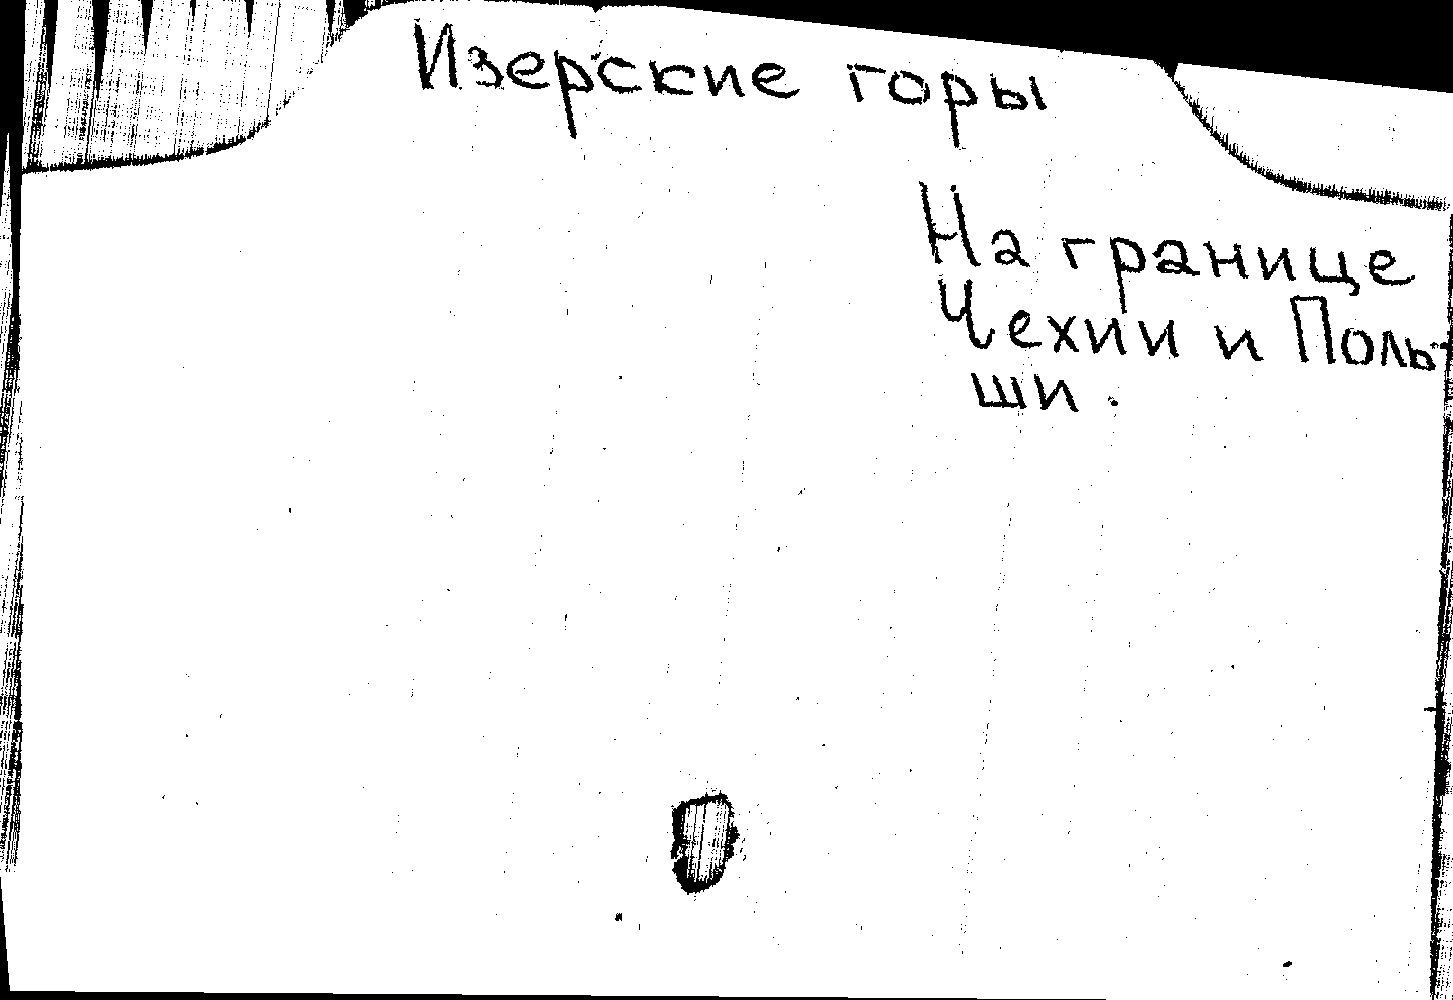 Изерские горы
На границе
Чехии и Поль-
ши.